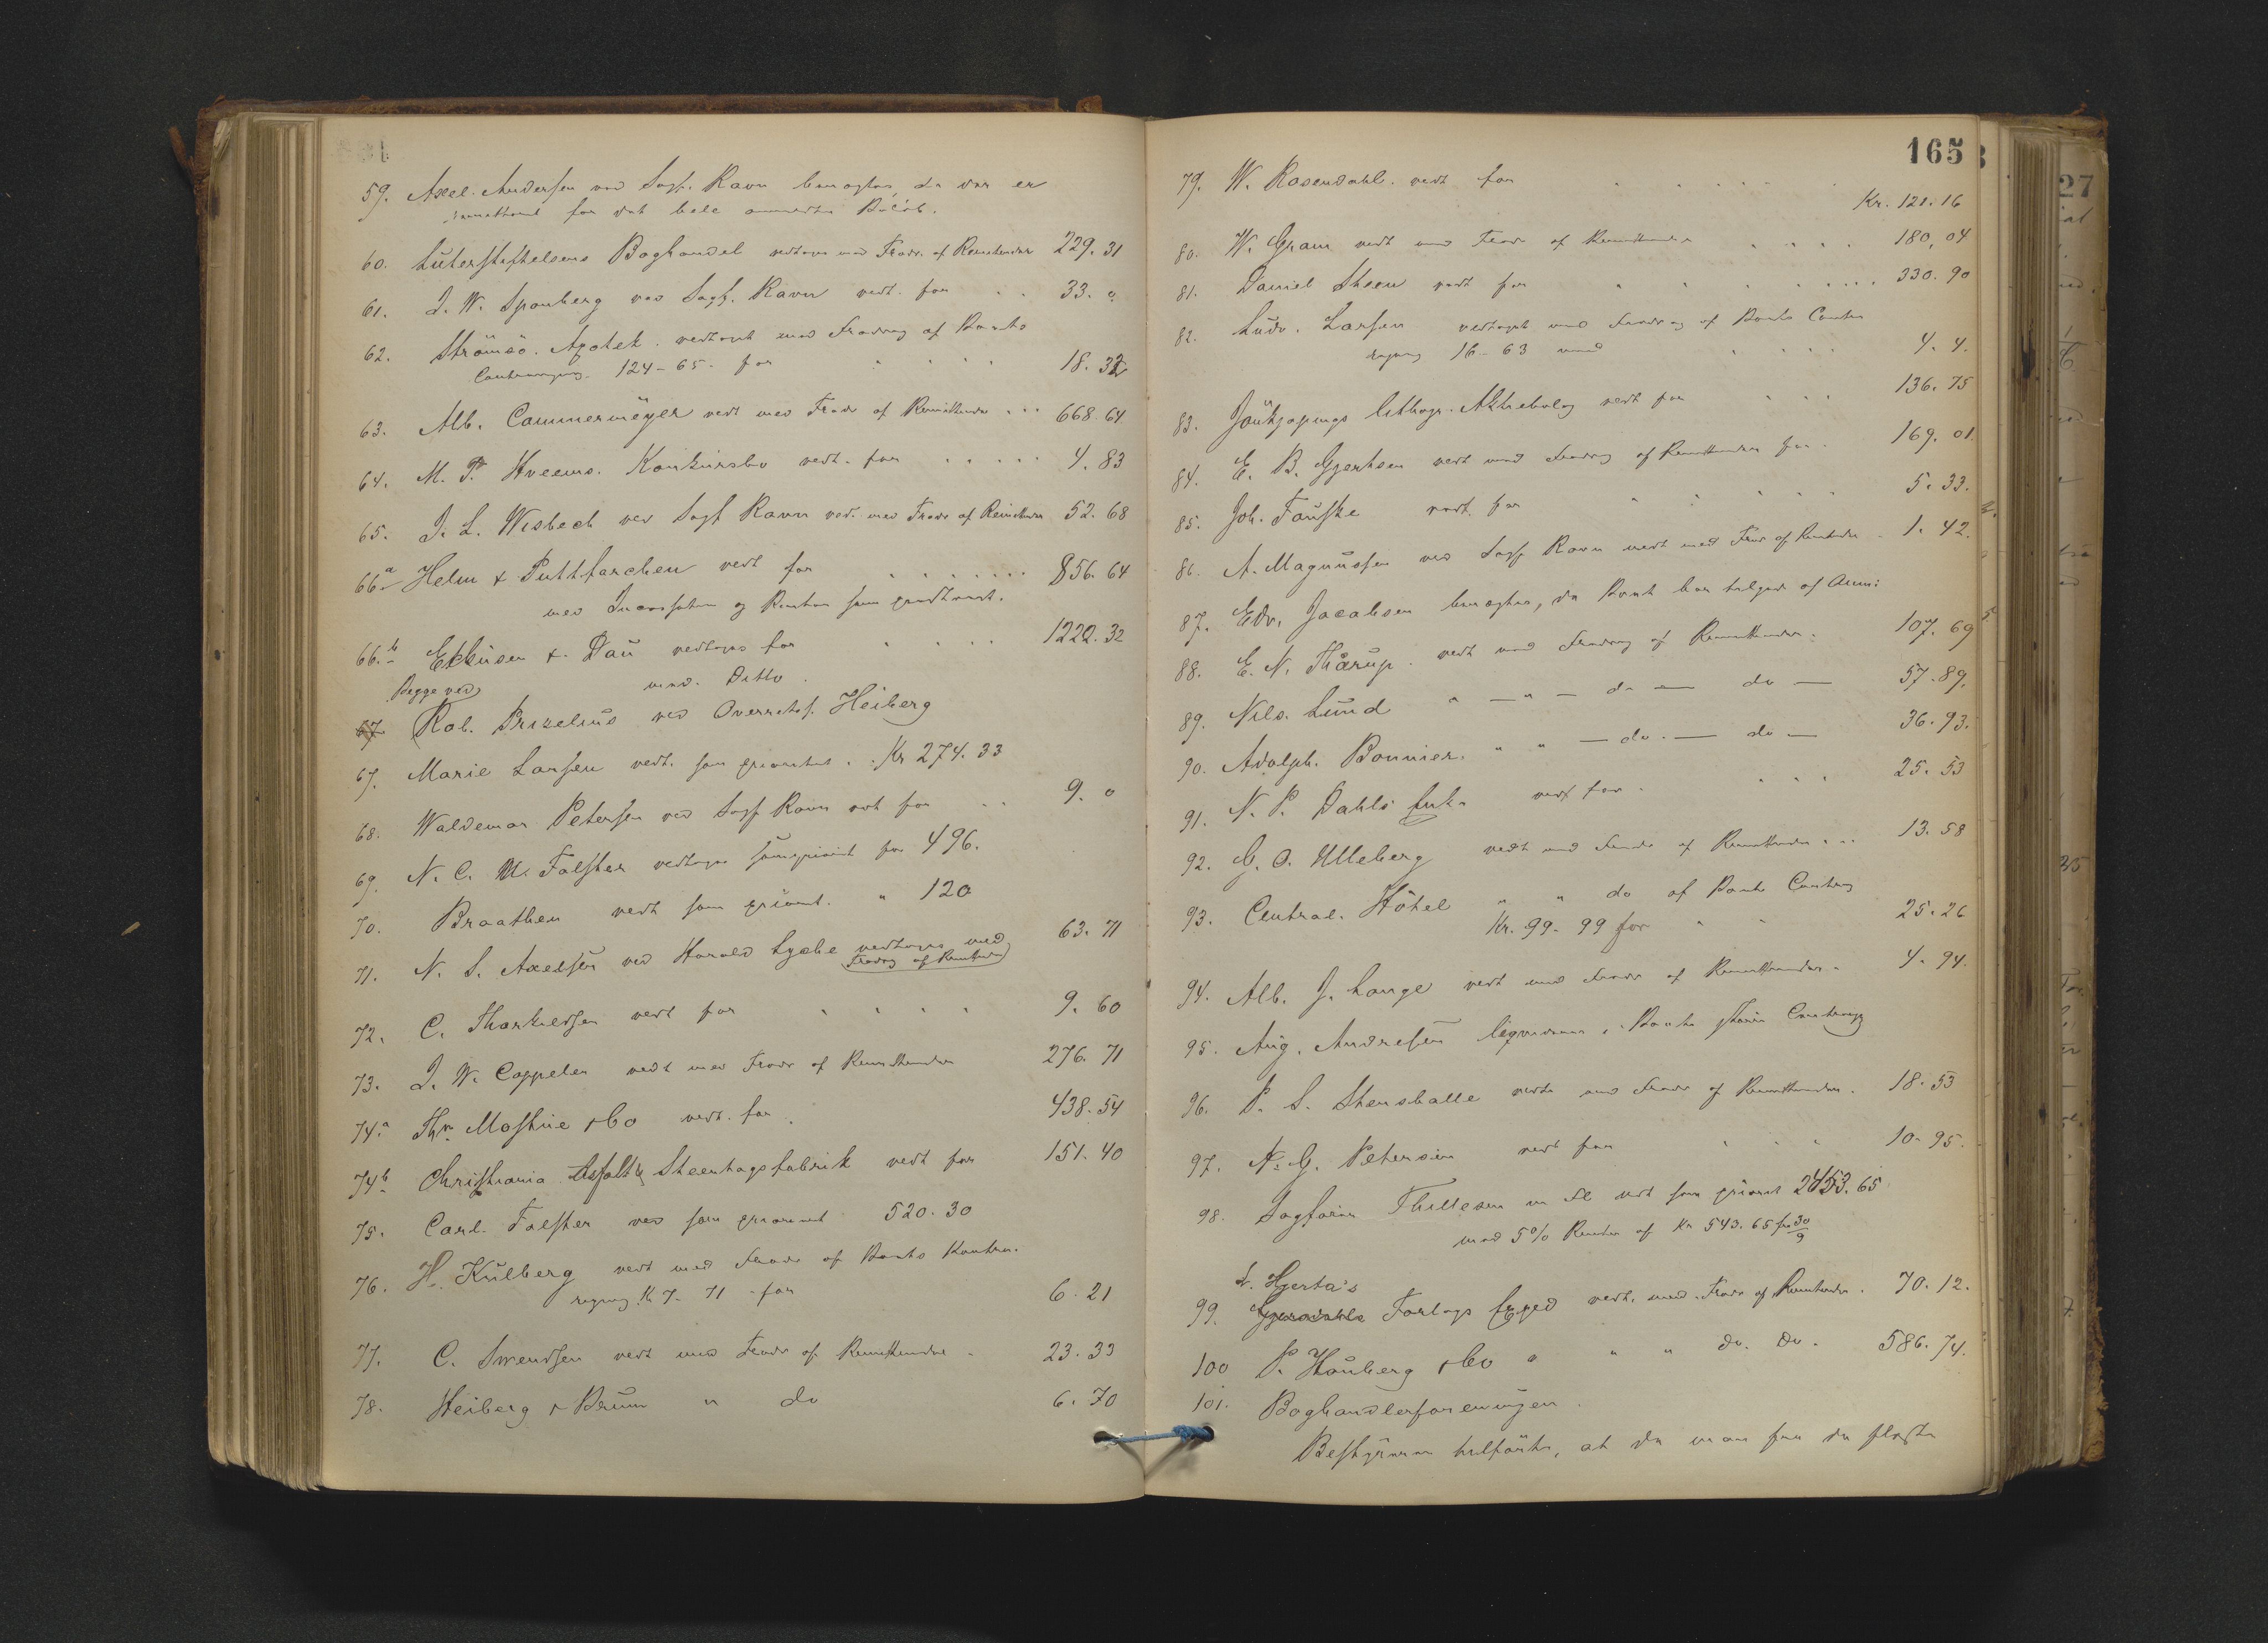 59. Axel. Andersen ved Sagf. Ravn benegtes, da der er
remitteret for det hele anmeldte Beløb.
60. Luterstiftelsens Boghandel vedtages med Fradr. af Remittender 229. 31
61. J. W. Sponberg ved Sagf. Ravn vedt. for 33. "
62. Strömsö. Apotek. vedtaget med Fradrag af Boets
Contraregning. 124-65. for 18. 32
63. Alb. Cammermeyer vedt med Fradr af Remittender 668. 64
64. M. P. Hveems. Konkursbo vedt. for 4. 83
65. J. L. Wisbech ved Sagf Ravn vedt. med Fradr af Remittender 52. 68
66.a Helm & vedt for 856. 64
med og Renter som
66.b & Dau vedtages for 1222. 32
Begge ved med. Ditto.
67. Rob. Prizelius ved Overretssf. Heiberg
67. Marie Larsen vedt. som prioritet. Kr 274. 33
68. Waldemar Petersen ved Sagf Ravn vedt for 9. "
69. N. C. M. Falster vedtages som priorit for 496.
70. Braathen vedt som priorit. " 120
71. N. S. Axelsen ved Harald Lyche vedtages med 63. 71
Fradrag af Remittender
72. C. Thorkildsen vedt for 9. 60
73. J. W. Cappelen vedt med Fradr af Remittender 276. 71
74.a Thv. Mostue & Co vedt. for 438. 54
74b. Christiania Asfalt & Steentagsfabrik vedt for 151. 40
75. Carl. Falster ved som priorit 520. 30
76. H. Kulberg vedt med Fradr af Boets Kontra-
regning. K 7-71 for 6. 21
77. C. Svendsen vedt med Fradr af Remittender 23. 33
78. Heiberg & Bruun " do 6. 70
165
79. W. Rosendahl. vedt for
Kr. 121. 16
80. W. Gram vedt med Fradr af Remittender 180. 04
81. Daniel Steen vedt for 330. 90
82. Ludv. Larsen vedtaget med Fradrag af Boets Contra
regning 16-63 med 4. 4.
83. Jönkjøpings Lithogr. Aktiebolag vedt for 136. 75
84. E. B. Gjertsen vedt med Fradrag af Remittender for 169. 01.
85. Joh. Fauske vedt. for 5. 33.
86. A. Magnussen ved Sagf Ravn vedt med Fradr af Remittender 1. 42.
87. Edv. Jacobsen benegtes, da Boet har
88. E. N. Tharup. vedt med Fradrag af Remittender. 107. 69
89. Nils. Lund " — " — do — do — 57. 89.
90. Adolph. Bonnier. " " — do. — do — 36. 93.
91. N. P. Dahls Enke vedt for 25. 53
92. G. O. Ulleberg vedt med Fradr af Remittender 13. 58
93. Central. Hôtel " " do af Boets Contrareg
Kr. 99. 99 for 25. 26
94. Alb. J. Lange vedt med Fradr af Remittender 4. 94.
95. Aug. Andresen Boets Contraregng
96. P. S. Stensballe vedt med Fradr af Remittender. 18. 53
97. N. G. Petersen vedt for 10. 95.
98. Sagfører Thillesen vedt som priorit 2453. 65
med 5% Renter af Kr 543. 65 fra 30/9
L. Hjerta's
99. Forlags Exped vedt. med Fradr af Remittender. 70. 12.
100 P. Hauberg & Co " " " do. do. 586. 74.
101. Boghandlerforeningen.
Bestyreren tilførte, at da man for de fleste